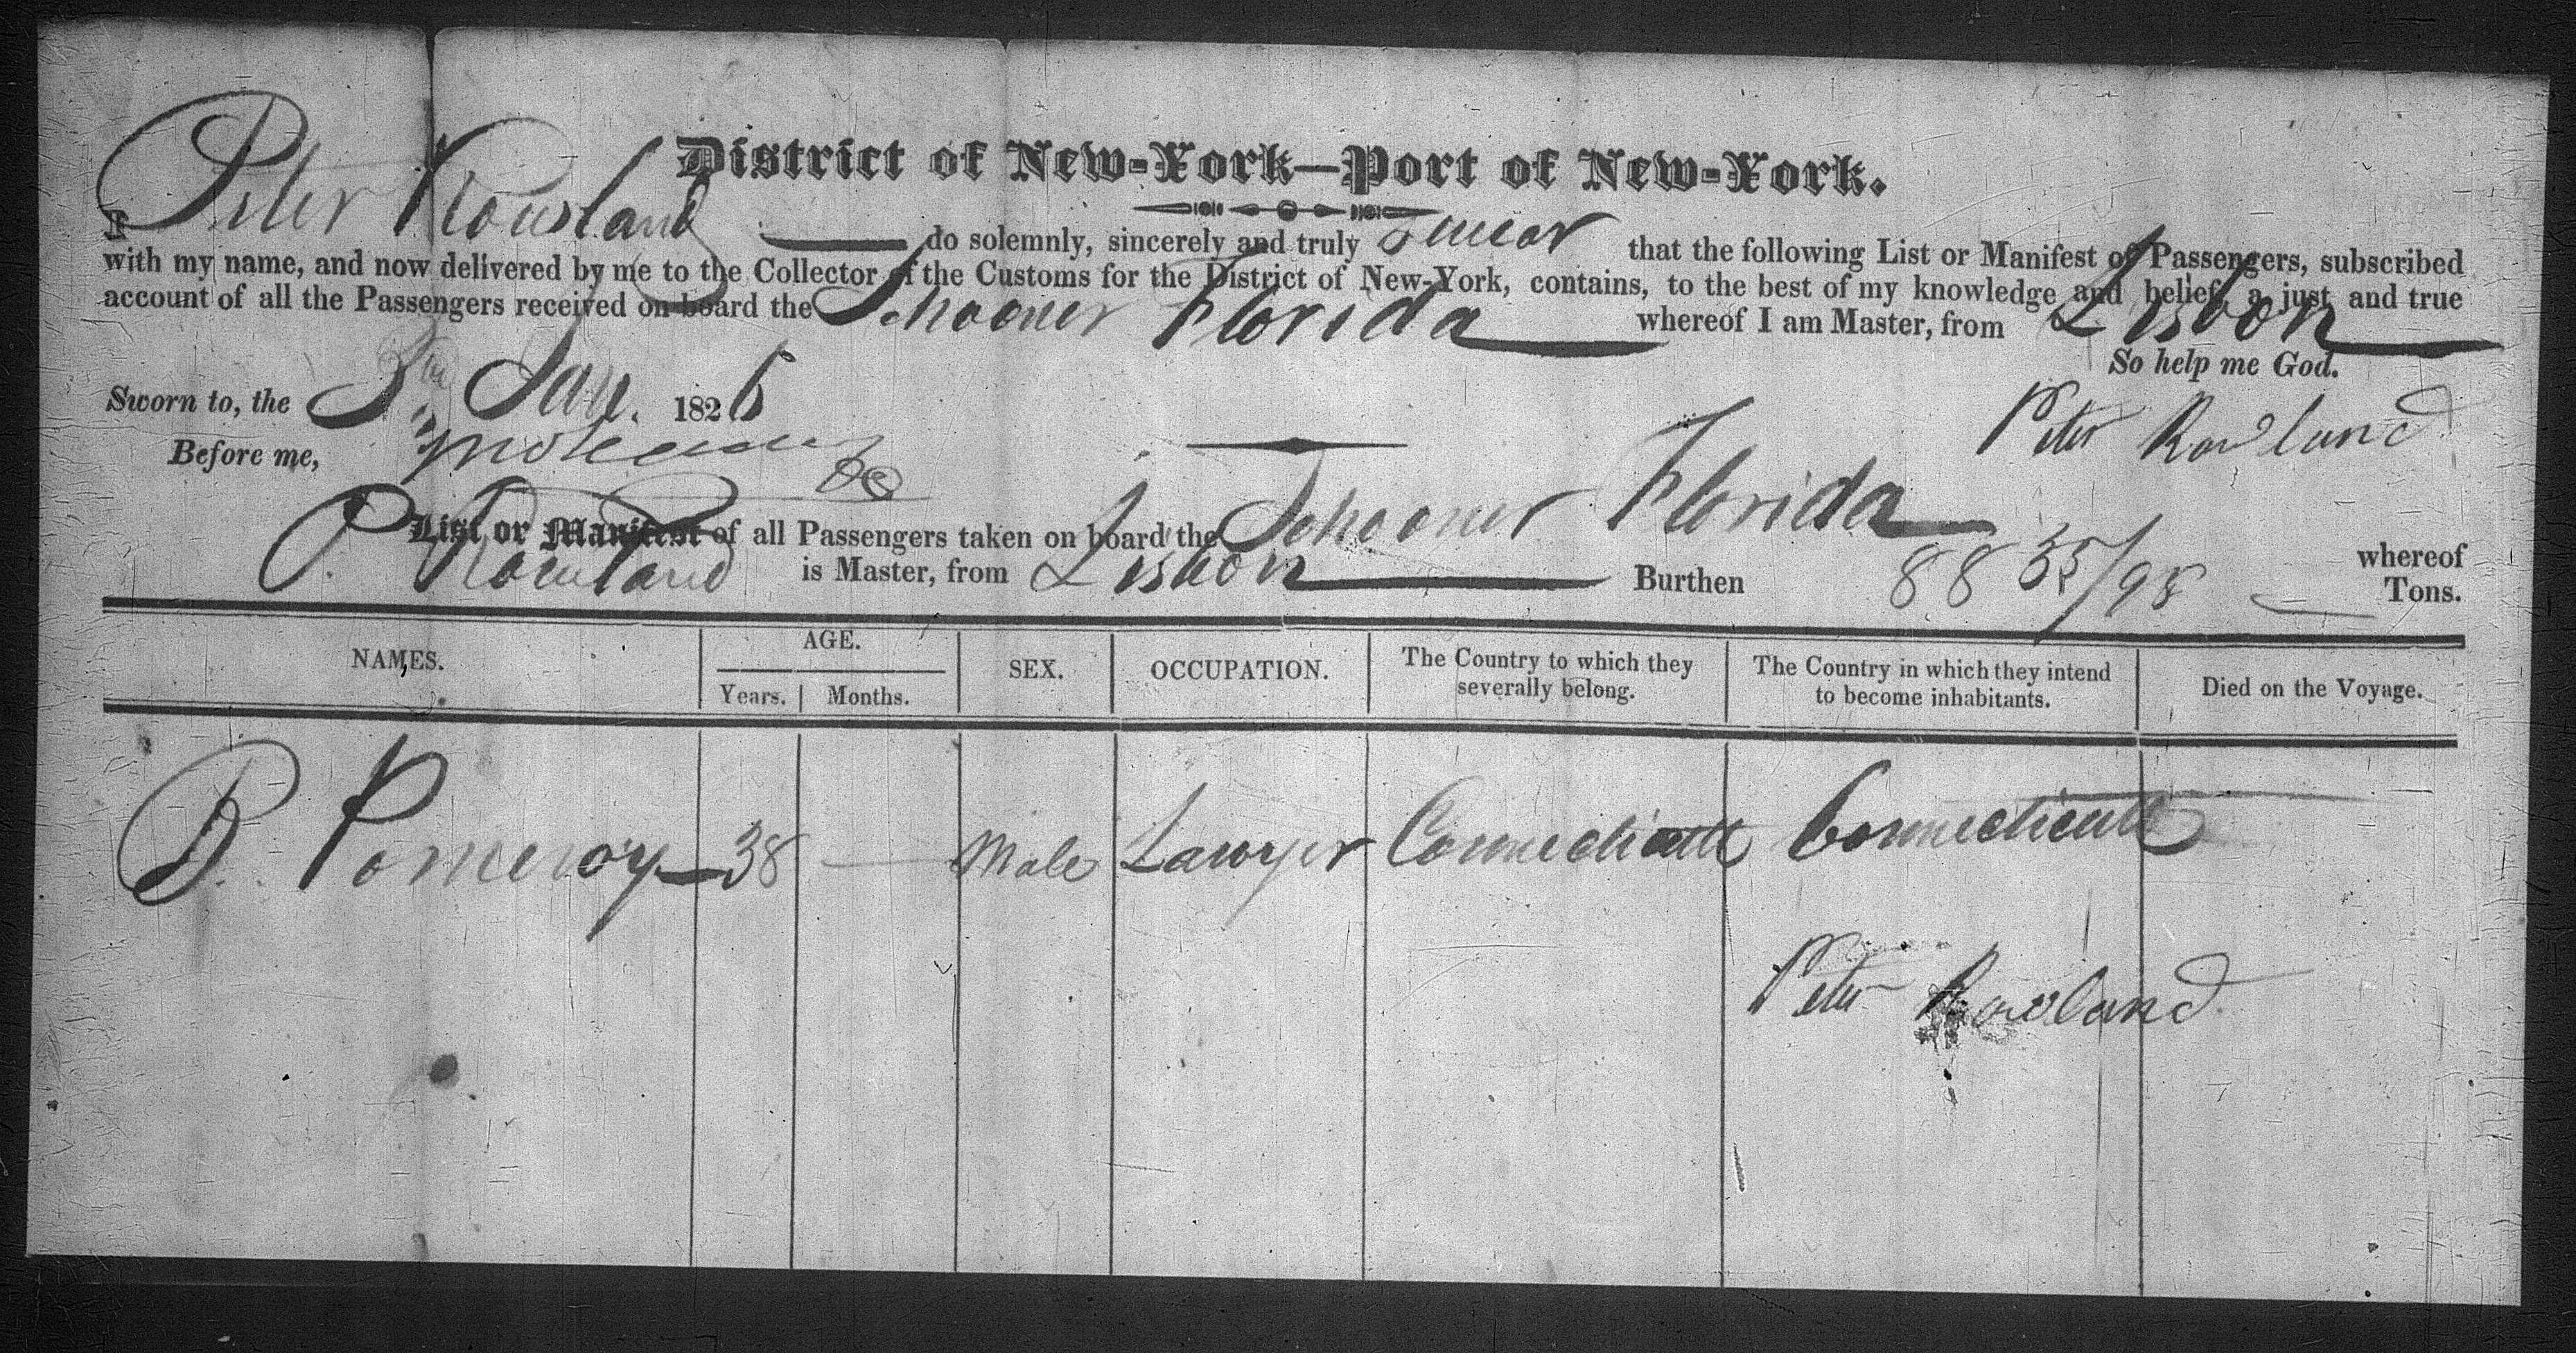 District of New-York—Port of New-York.
I Peter Rowland do solemnly, sincerely and truly Swear that the following List or Manifest of Passengers, subscribed
with my name, and now delivered by me to the Collector of the Customs for the District of New-York, contains, to the best of my knowledge and belief, a just and true
account of all the Passengers received on board the Schooner Florida whereof I am Master, from Lisbon
So help me God.
Sworn to, the 3 Jan. 1826
Peter Rowland
Before me,
List or Manifest of all Passengers taken on board the Schooner Florida whereof
P. Rowland is Master, from Lisbon Burthen 88 35/98 Tons.
NAMES. AGE. Years. Months. SEX. OCCUPATION. The Country to which they severally belong. The Country in which they intend to become inhabitants. Died on the Voyage.
B. Pomeroy 38 — Male Lawyer Connecticutt Connecticutt
Peter Rowland